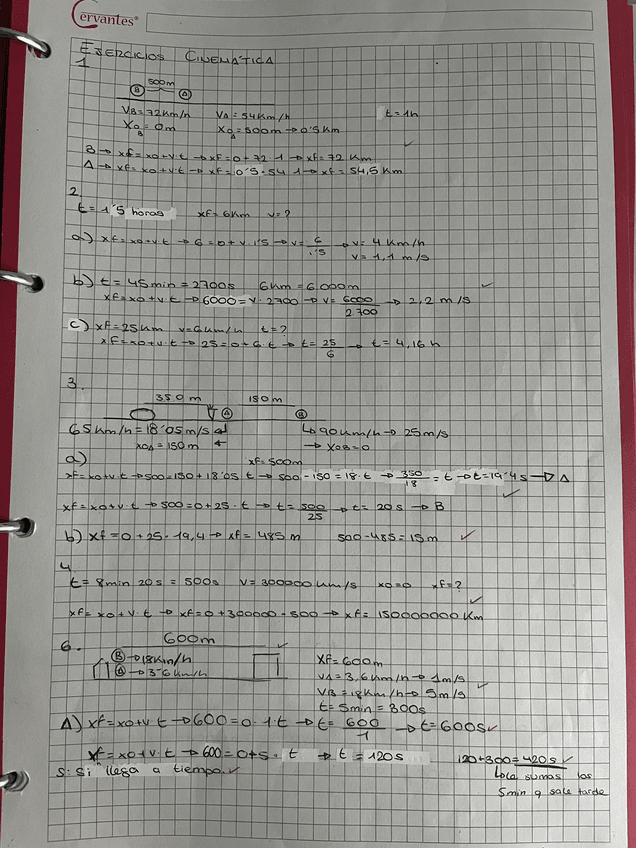 Cervantes®
EJERCICIOS CINEMÁTICA
1
500m
B A
VB=72Km/h VA=54Km/h t=1h
X0B=0m X0A=500m→0'5Km
B→xf=x0+v·t→xf=0+72·1→xf=72 Km
A→xf=x0+v·t→xf=0'5·54·1→xf=54,5Km
2.
t=1'5 horas xf=6Km v=?
a) xf=x0+v·t→6=0+v·1'5→v=6/1'5→v=4Km/h
v=1,1m/s
b) t=45min=2700s 6Km=6.000m
xf=x0+v·t→6000=v·2700→v=6000/2700→2,2m/s
c) xf=25Km v=6Km/h t=?
xf=x0+v·t→25=0+6·t→t=25/6→t=4,16h
3.
350m 150m
A B
65Km/h=18'05m/s ↳90Km/h→25m/s
x0A=150m →X0B=0
a) xf=500m
xf=x0+v·t→500=150+18'05·t→500-150=18·t→350/18=t→t=19'4s→A
xf=x0+v·t→500=0+25·t→t=500/25→t=20s→B
b) xf=0+25·19,4→xf=485m 500-485=15m
4.
t=8min 20s=500s v=300000Km/s x0=0 xf=?
xf=x0+v·t→xf=0+300000·500→xf=150000000Km
600m
6.
B→18Km/h XF=600m
A→3'6Km/h VA=3,6Km/h→1m/s
VB=18Km/h→5m/s
t=5min=300s
A) xf=x0+v·t→600=0·1·t→t=600/1→t=600s
xf=x0+v·t→600=0+5·t→t=120s 120+300=420s
S: si llega a tiempo. ↳le sumas los
5min q sale tarde